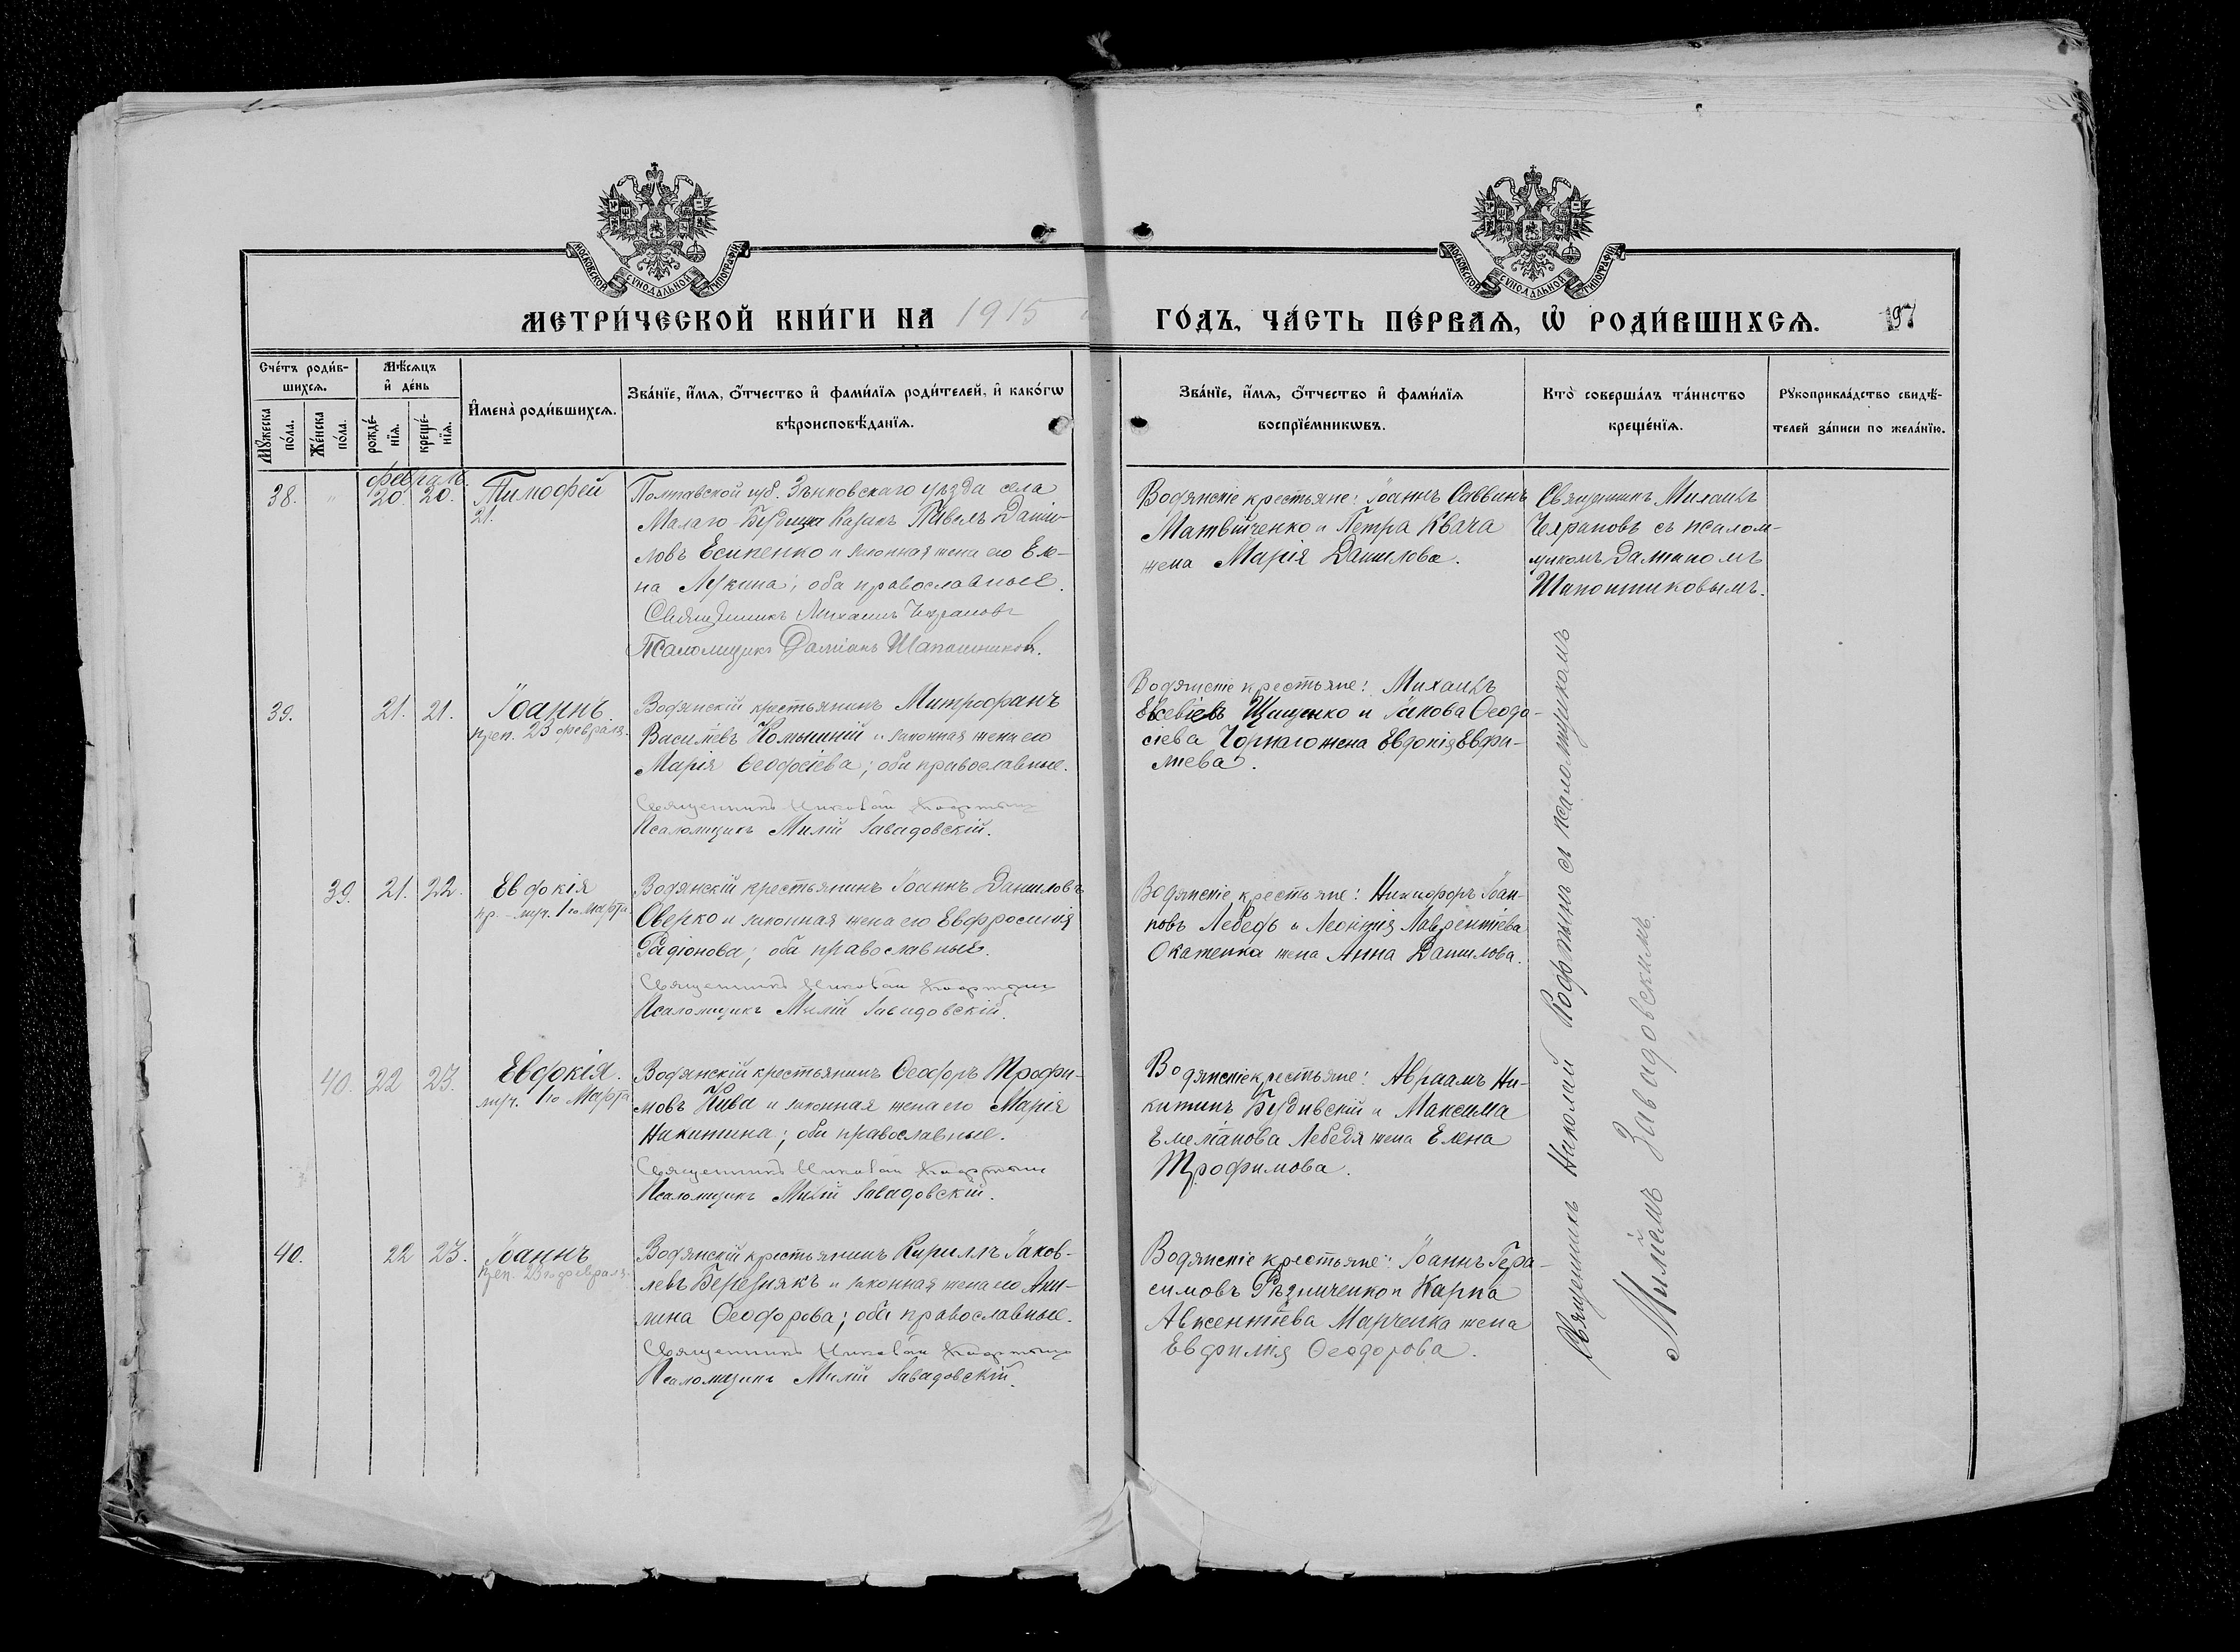 МОСКОВСКОЙ СУНОДАЛЬНОЙ ТИПОГРАФІИ
МОСКОВСКОЙ СУНОДАЛЬНОЙ ТИПОГРАФІИ
МЕТРИ́ЧЕСКОЙ КНИ́ГИ НА 1915
ГО́ДЪ, ЧА́СТЬ ПЕ́РВАѦ, Ѡ҆ РОДИ́ВШИХСѦ. 197
Сче́тъ роди́в-
шихсѧ.
Мꙋ́жеска
по́ла.
Же́нска
по́ла.
Мѣ́сѧцъ
и҆ де́нь
рожде́-
нїѧ.
креще́-
нїѧ.
И҆мена̀ роди́вшихсѧ.
Зва́нїе, и҆́мѧ, ѻ҆́тчество и҆ фами́лїѧ роди́телей, и҆ како́гѡ
вѣроисповѣ́данїѧ.
Зва́нїе, и҆́мѧ, ѻ҆́тчество и҆ фами́лїѧ
воспрїе́мникѡвъ.
Кто̀ соверша́лъ та́инство
креще́нїѧ.
Рꙋкоприкла́дство свидѣ́-
телей за́писи по жела́нїю.
Февраль.
38. " 20. 20. Тимофей
21.
Полтавской губ. Зѣнковскаго уѣзда села
Малаго-Будища Казакъ Павелъ Дани-
ловъ Есипенко и законная жена его Еле-
на Лукина; оба православные.
Священникъ Михаилъ Чехрановъ
Псаломщикъ Даміанъ Шапошниковъ.
Водянскіе крестьяне: Іоаннъ Саввинъ
Матвійченко и Петра Квача
жена Марія Данилова.
Священникъ Михаилъ
Чехрановъ съ псалом-
щикомъ Даміаномъ
Шапошниковымъ.
39. 21. 21. Іоаннъ
преп. 23 февраля.
Водянскій крестьянинъ Митрофанъ
Васильевъ и законная жена его
Марія Ѳеодосіева; оба православные.
Священникъ Николай
Псаломщикъ Милій Завадовскій.
Водянскіе крестьяне: Михаилъ
Евсевіевъ Щащенко и Іакова Ѳеодо-
сіева Чорнаго жена Евдокія Евфи-
міева.
39. 21. 22. Евдокія
пр.-муч. 1го марта
Водянскій крестьянинъ Іоаннъ Даниловъ
Оверко и законная жена его Евфросинія
Радіонова; оба православные.
Священникъ Николай
Псаломщикъ Милій Завадовскій.
Водянскіе крестьяне: Никифоръ Іоан-
новъ Лебедь и Леонтія Лаврентіева
Окатенка жена Анна Данилова.
40. 22 23. Евдокія.
муч. 1го Марта
Водянскій крестьянинъ Ѳеодоръ Трофи-
мовъ Кива и законная жена его Марія
Никитина; оба православные.
Священникъ Николай
Псаломщикъ Милій Завадовскій.
Водянскіе крестьяне: Авраамъ Ни-
китинъ Будивскій и Максима
Емеліанова Лебедя жена Елена
Трофимова.
40. 22 23. Іоаннъ
преп. 23го февраля.
Водянскій крестьянинъ Кириллъ Іаков-
левъ Березнякъ и законная жена его Аки-
лина Ѳеодорова; оба православные.
Священникъ Николай
Псаломщикъ Милій Завадовскій.
Водянскіе крестьяне: Іоаннъ Гера-
симовъ Рѣзниченко и Карпа
Авксентіева Марченка жена
Евфимія Ѳеодорова.
Священникъ Николай съ псаломщикомъ
Миліемъ Завадовскимъ.